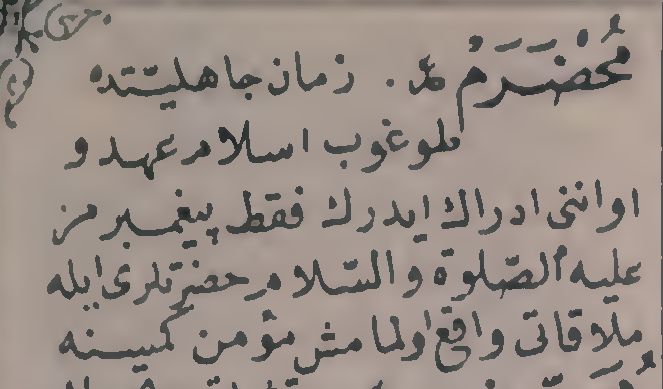 مُخَضْرَمْ ع. زمان جاهليّتده
طوغوب اسلام عهد و
اواننى ادراك ايدرك فقط پيغمبرمز
عليه الصّلوة والسّلام حضرتلرى ايله
ملاقاتى واقع اولمامش مؤمن كمسنه